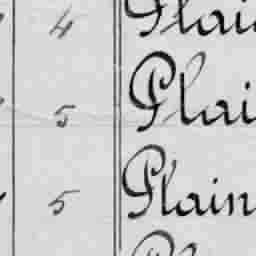 4 Plai
5 Plai
5 Plain